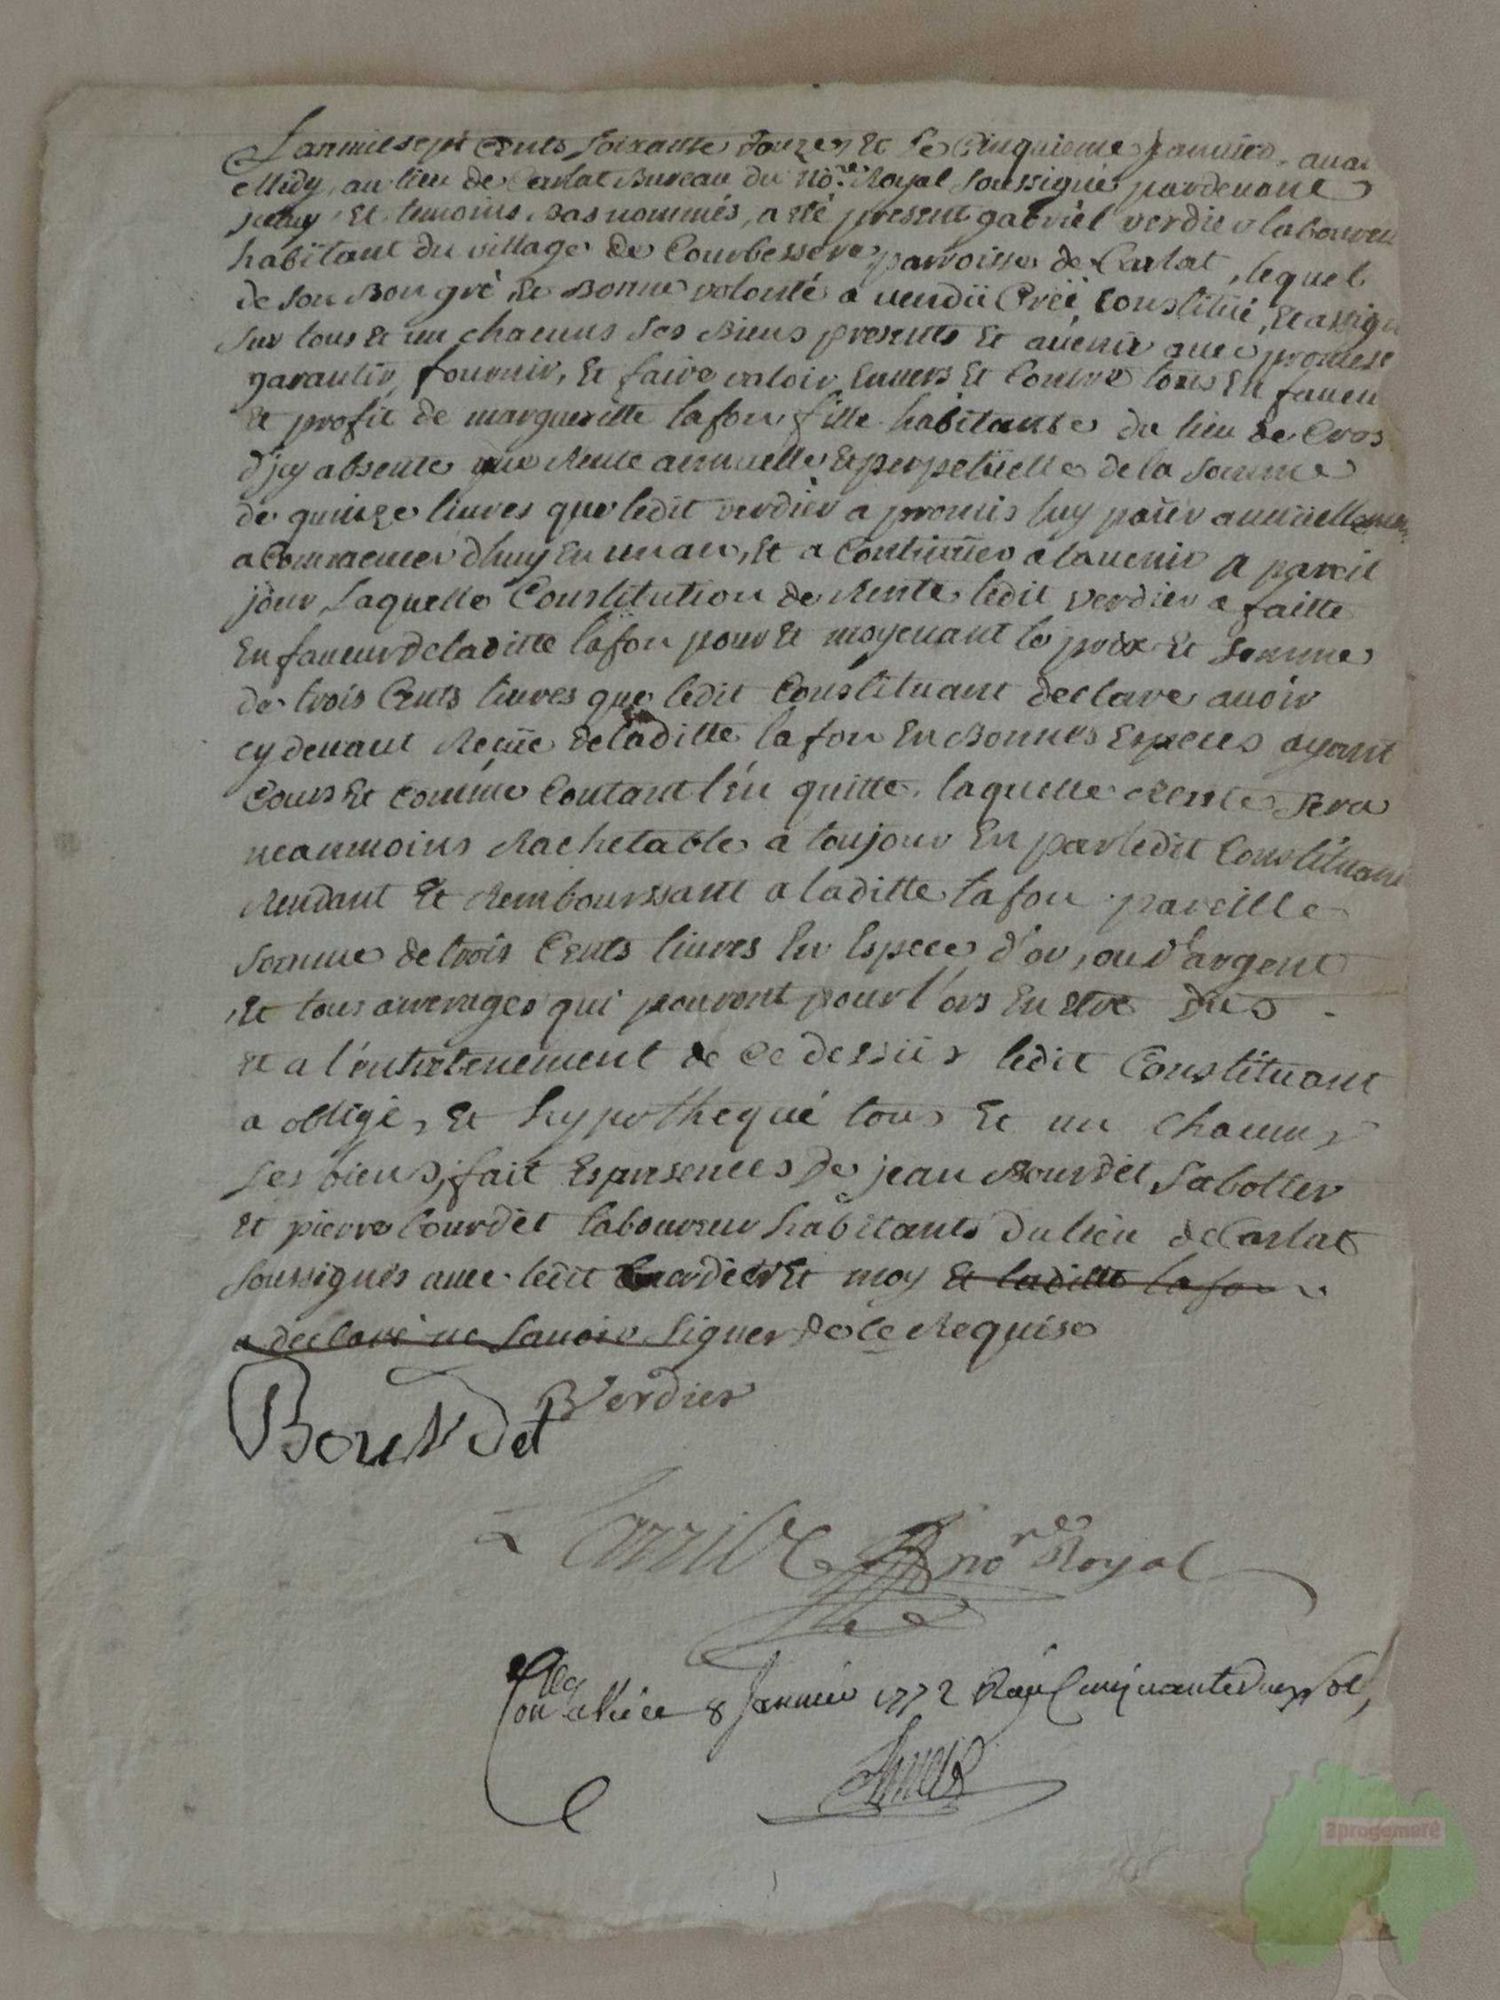 L'an mil sept Cents soixante douze, Et Le Cinquieme Janvier, avan
Midy, au lieu de Carlat Bureau du No.re Royal soussigné pardevant
Et temoins, Bas nommés, a eté present gabriel verdier laboureu
habitant du village de Courbessere parroisse de Carlat, lequel
de son Bon gré, Et Bonne volonté a vendü Créé, Constitüé, Et assign
sur tous et un chacuns ses Biens presents Et avenir avec promesse
garantir, fournir, Et faire valoir Envers Et Contre tous En faveu
Et profit de margueritte lafon fille habitante du lieu de Cros
d'jcy absente une Rente annuelle Et perpetüelle de la somme
de quinze livres que ledit verdier a promis luy païer annüellemen
a Commencer d'huy En un an, Et a Continüer a lavenir a pareil
jour, Laquelle Constitution de Rente ledit verdier a faitte
En faveur de laditte lafon pour Et moyenant le prix Et somme
de trois Cents livres que ledit Constituant declare avoir
cy devant Recüe de laditte lafon En Bonnes Especes ayant
Cours Et comme Contant l'en quitte, laquelle Rente sera
neanmoins Rachetable a toujour En par ledit Constituant
Rendant Et Remboursant a laditte lafon pareille
somme de trois Cents livres En Espece d'or, ou d'argent
Et tous arrerages qui pouront pour l'ors En etre Dus
Et a l'entretenement de Ce dessüs ledit Constituant
a obligé, Et hypothequé tous Et un chacuns
ses biens, fait Es presences de jean Bourdet, sabottier
Et pierre Courdet laboureur habitants du lieu de Carlat
soussignés avec ledit verdier Et moy Et laditte lafon
a declaré ne savoir signer de Ce Requise
Verdier
Bourdet
no.re Royal
Con 8 Janvier 1772 Reçu Cinquante deux sols
3progamaré